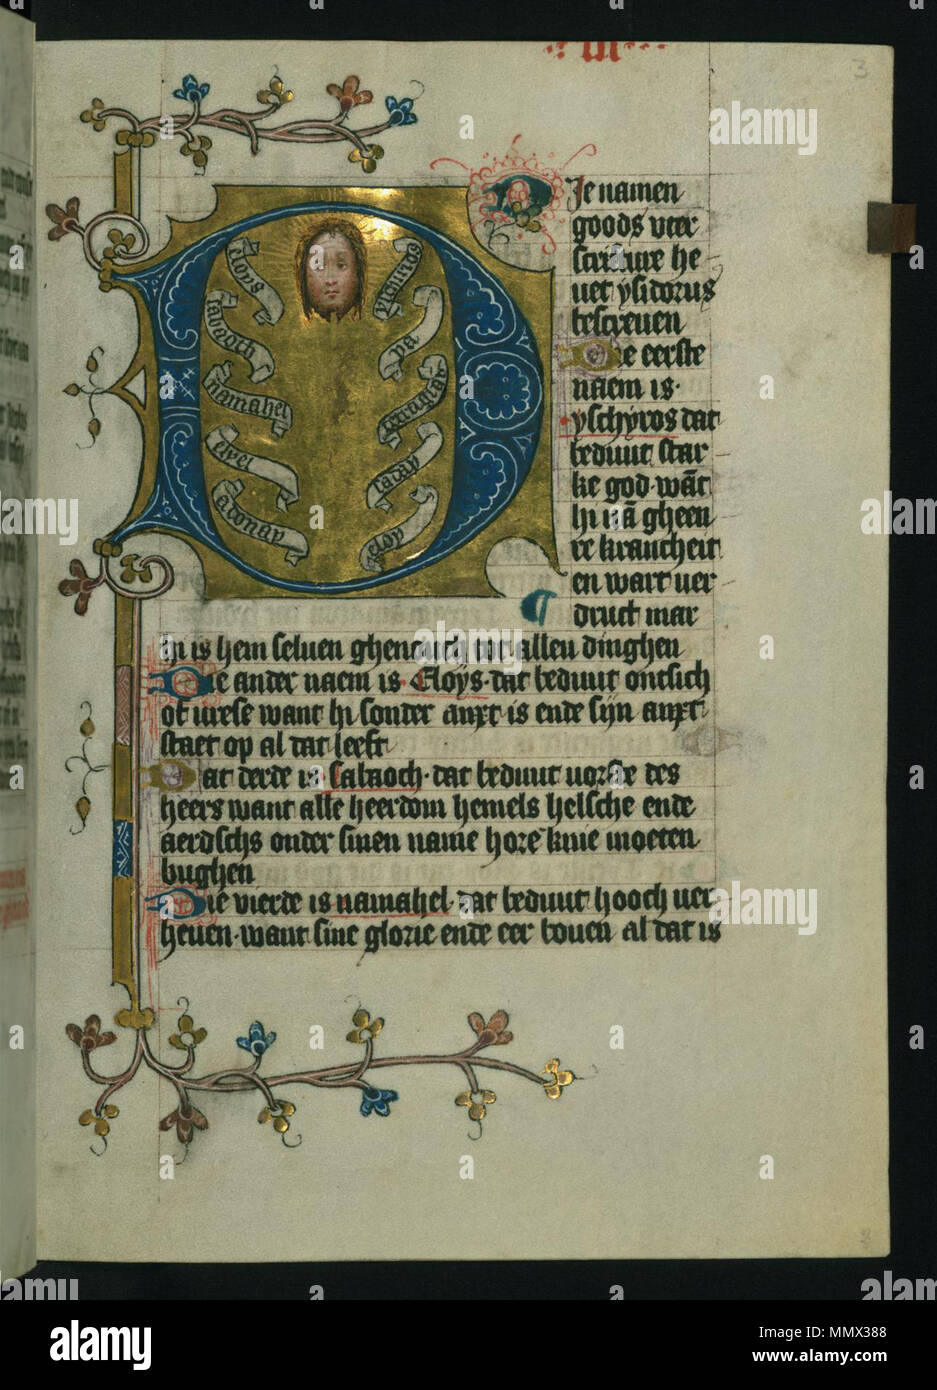 3
eloys
sabaoth
namahel
elyel
adonay
yschiros
ya
saday
eloy
Die namen
goods veer
scriture he
uet ysidorus
bescreuen
Die eerste
naem is
yschyros dat
beduut star
ke god wāt
hi nā gheen
re krancheit
en wart ver
druct mar
hi is hem seluen ghenouch tot allen dinghen
Die ander naem is Eloys dat beduut ontsich
of vrese want hi sonder anxt is ende sijn anxt
staet op al dat leeft
Dat derde is sabaoch dat beduut vorste des
heers want alle heerdom hemels helsche ende
aerdschs onder sinen name hore knie moeten
bughen
Die vierde is namahel dat beduut hooch ver
heuen want sine glorie ende eer bouen al dat is
alamy
alamy
Image ID: MMX388
www.alamy.com